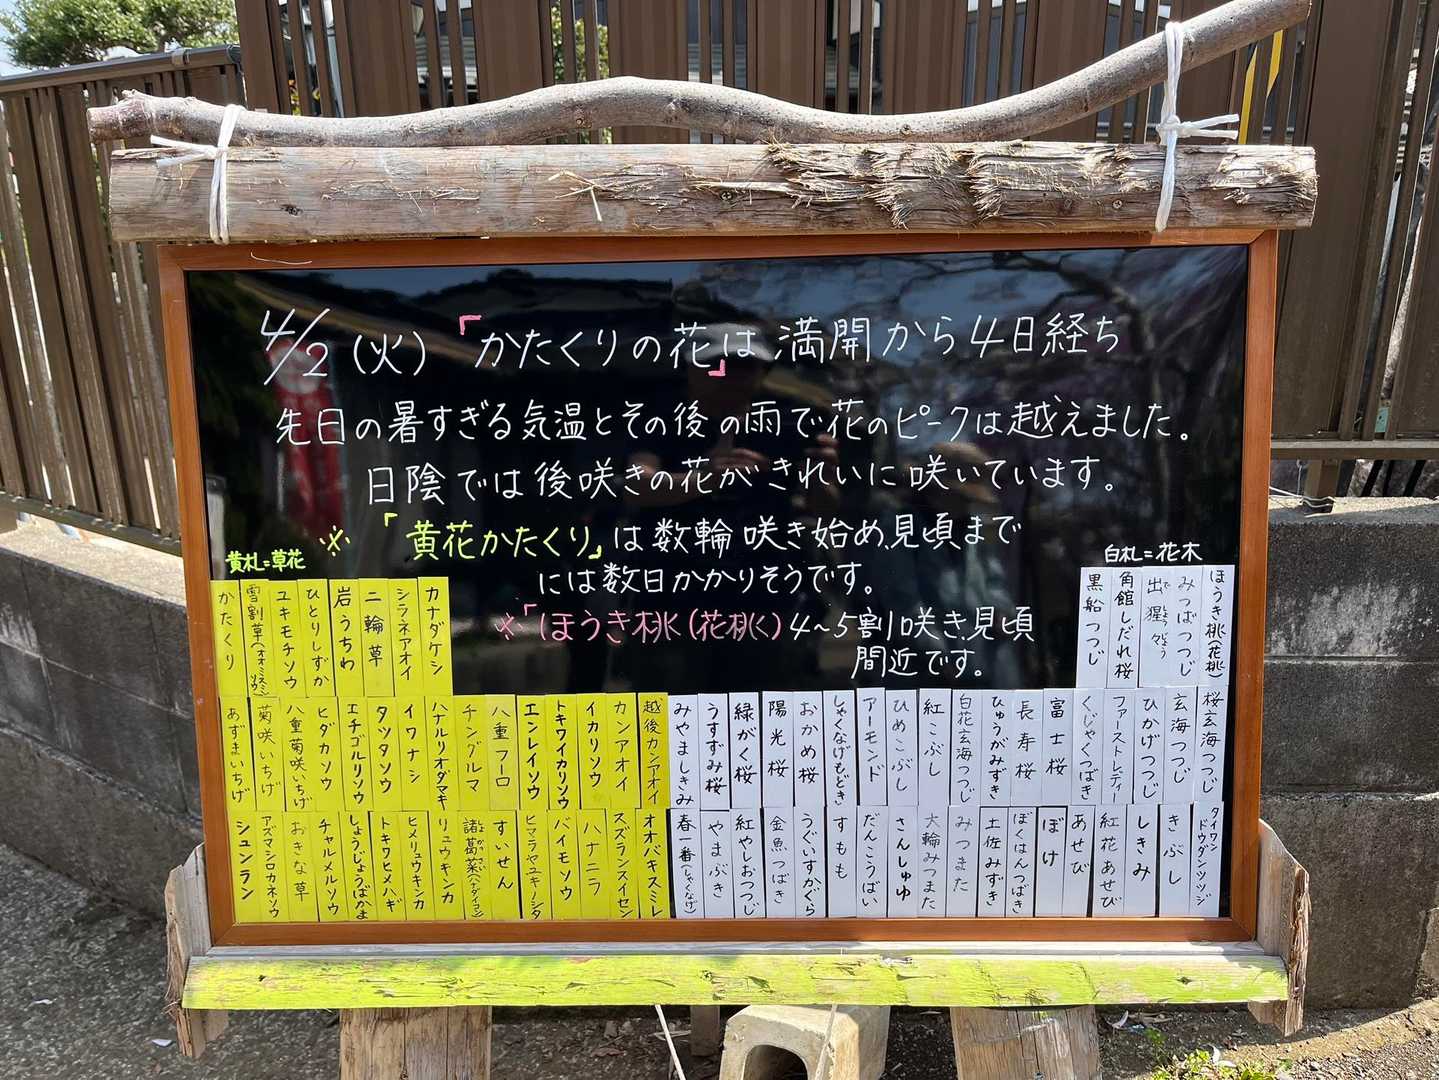 4/2(火)「かたくりの花」は満開から4日経ち
先日の暑すぎる気温とその後の雨で花のピークは越えました。
日陰では後咲きの花がきれいに咲いています。
※「黄花かたくり」は数輪咲き始め、見頃まで
には数日かかりそうです。
※「ほうき桃(花桃)4~5割咲き、見頃
間近です。
黄札=草花
かたくり
雪割草(オオミスミソウ)
ユキモチソウ
ひとりしずか
岩うちわ
二輪草
シラネアオイ
カナダケシ
あずまいちげ
菊咲いちげ
八重菊咲いちげ
ヒダカソウ
エチゴルリソウ
タツタソウ
イワナシ
ハナルリオダマキ
チングルマ
八重フーロ
エンレイソウ
トキワイカリソウ
イカリソウ
カンアオイ
越後カンアオイ
シュンラン
アズマシロカネソウ
おきな草
チャルメルソウ
しょうじょうばかま
トキワヒメハギ
ヒメリュウキンカ
リュウキンカ
諸葛菜(ハナダイコン)
しょかっさい
すいせん
ヒマラヤユキノシタ
バイモソウ
ハナニラ
スズランスイセン
オオバキスミレ
白札=花木
ほうき桃(花桃)
みつばつつじ
出猩々
でしょうじょう
角館しだれ桜
黒船つつじ
桜玄海つつじ
玄海つつじ
ひかげつつじ
ファーストレディー
くじゃくつばき
富士桜
長寿桜
ひゅうがみずき
白花玄海つつじ
紅こぶし
ひめこぶし
アーモンド
しゃくなげもどき
おかめ桜
陽光桜
緑がく桜
うすずみ桜
みやましきみ
タイワンドウダンツツジ
きぶし
しきみ
紅花あせび
あせび
ぼけ
ぼくはんつばき
土佐みずき
みつまた
大輪みつまた
さんしゅゆ
だんこうばい
すもも
うぐいすかぐら
金魚つばき
紅やしおつつじ
やまぶき
春一番(しゃくなげ)